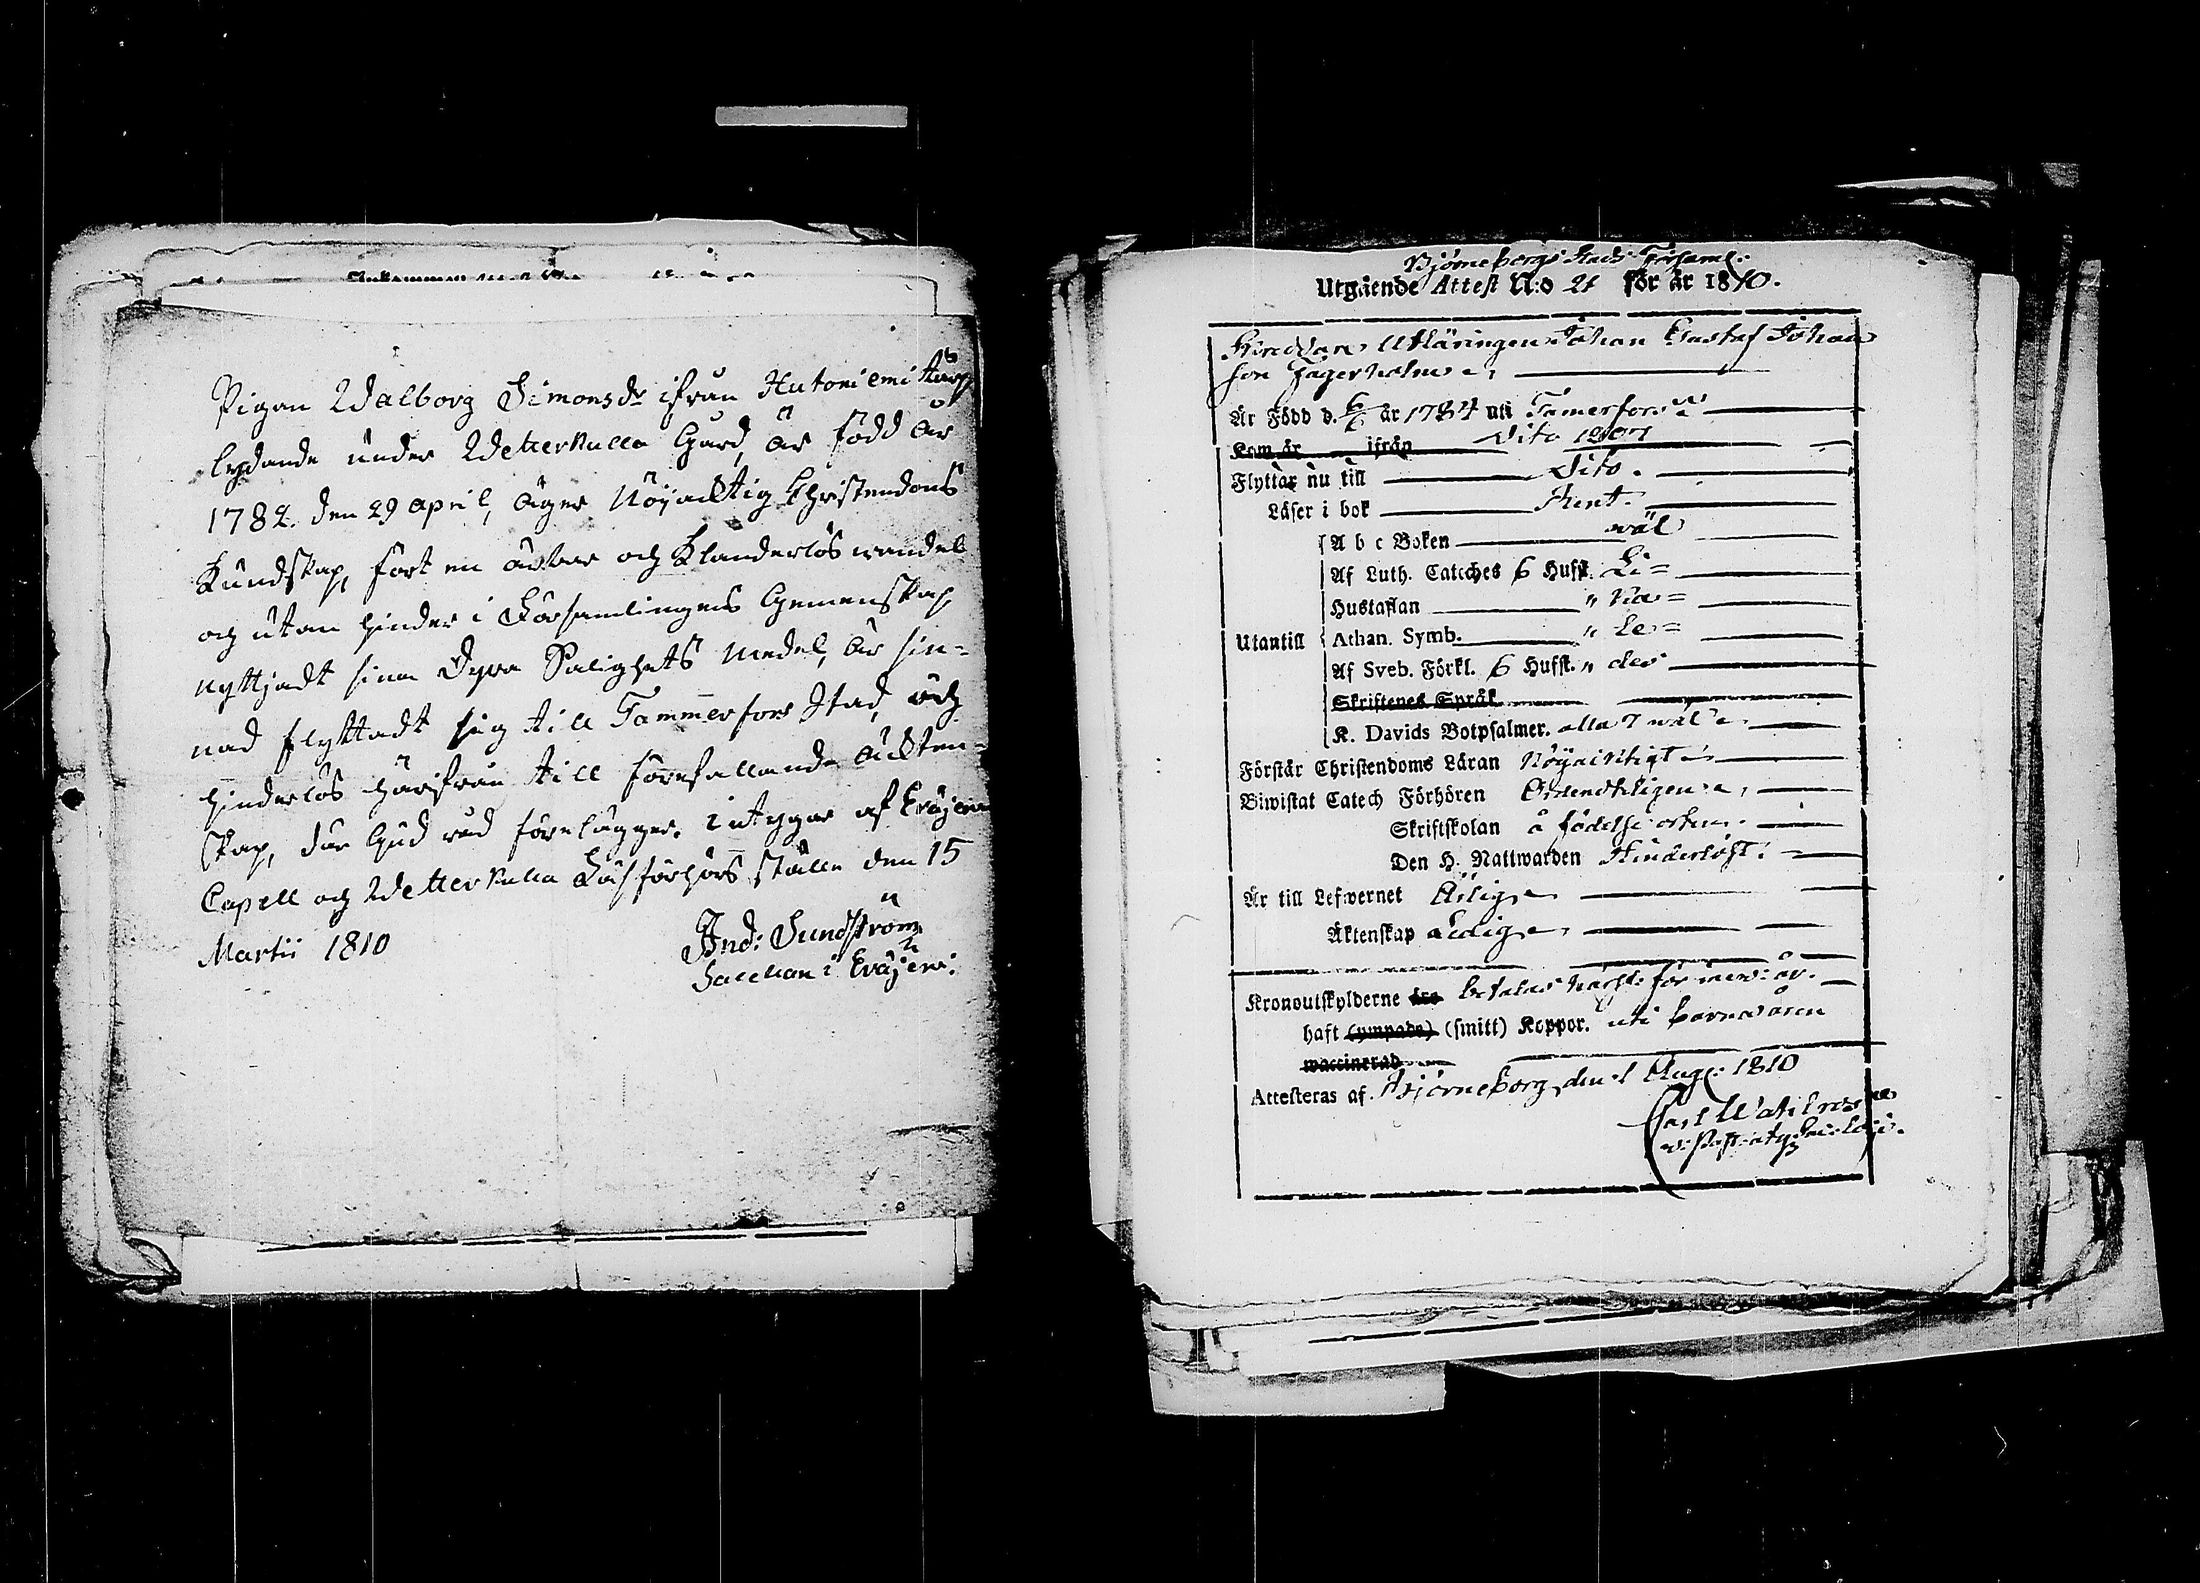 Pigan Walborg Simonsdr ifrån Hutoniemi torp
lydande under Wetterkulla Gård, är född år
1782. den 29 april, äger Nöjacktig Christendoms
Kundskap, fört en ärbar och Klanderlös wandel
och utan hinder i Församlingens Gemenskap
nyttjadt sina Dyra Salighets medel, är sin-
nad flyttadt sig till Tammerfors Stad, och
hinderlös härifrån till förefallande äckten-
skap, där Gud råd förelägger. intygar af Eräjerwi
Capell och Wetterkulla Läsförhörs ställe den 15
Martii 1810
And: Sundström
Sacellan i Eräjerwi.
Björneborgs Stads Församl:
Utgående Attest N:o 21 för år 1810.
Skreddare Utläringen Johan Gustaf Johan
son Jägerholm
Är Född d. 6/6 år 1784 uti Tamerfors
Kom år ifrån Dito 1807
Flyttar nu till Dito.
Läser i bok Rent.
A b c Boken wäl
Af Luth. Cateches 6 Hufst. Li=
Hustaflan " ka=
Utantill Athan. Symb. " Le=
Af Sveb. Förkl. 6 Hufst. " des
Skriftenes Språk
K. Davids Botpsalmer. alla 7 wäl
Förstår Christendoms Läran Nöyaktigt
Biwistat Catech Förhören Ordentligen
Skriftskolan å födelse orten.
Den H. Nattwarden Hinderlöst.
Är till Lefwernet Ärlig
Äktenskap Ledig
Kronoutskylderne äro betalas härst. för inew: år.
haft (ympade) (smitt) Koppor. uti barnaåren
waccinerad
Attesteras af. Björneborg, den 1 Aug: 1810
Carl